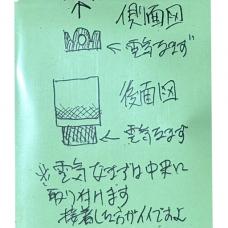 側面図
←電気なまず
後面図
←電気なまず
※電気なまずは中央に
取り付けます
接着した方がイイですよ